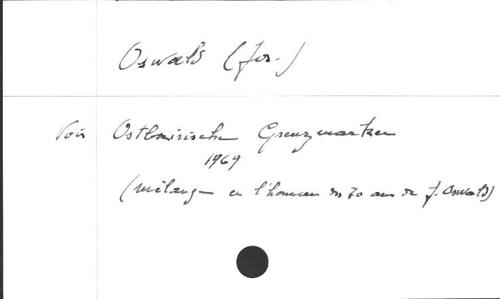 Oswald (Jos.)
Voir Ostbairische Grenzmarken
1969
(mélanges en l'honneur des 70 ans de J. Oswald)